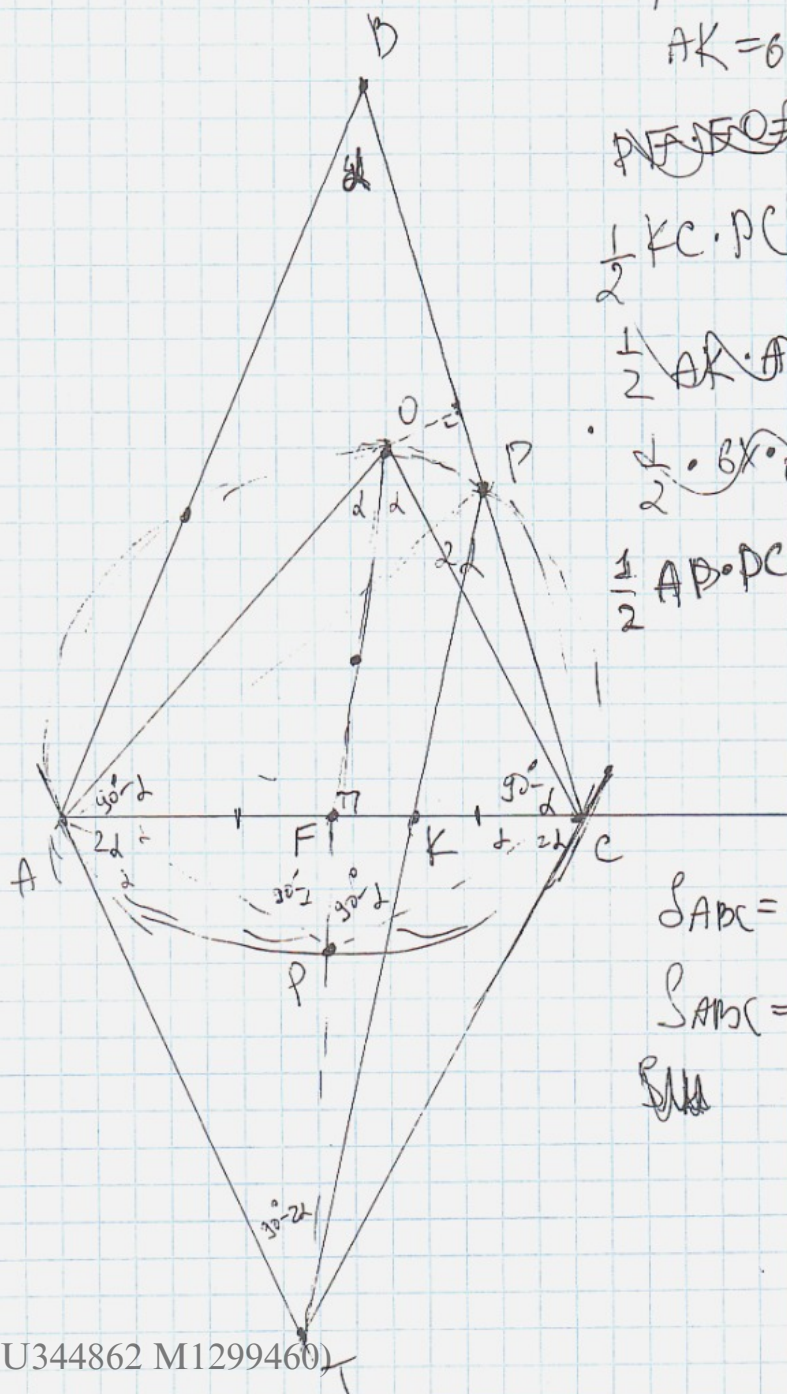 B
AK = 6
1/2 KC · PC
1/2 AK · A
1/2 · 6x ·
1/2 AP · PC
O
P
α α
2α
90°-α
90°-α
2α
α
α
2α
A
F
K
C
90°-α
90°-α
P
90°-2α
T
S_ABC =
S_ABC =
U344862 M1299460)